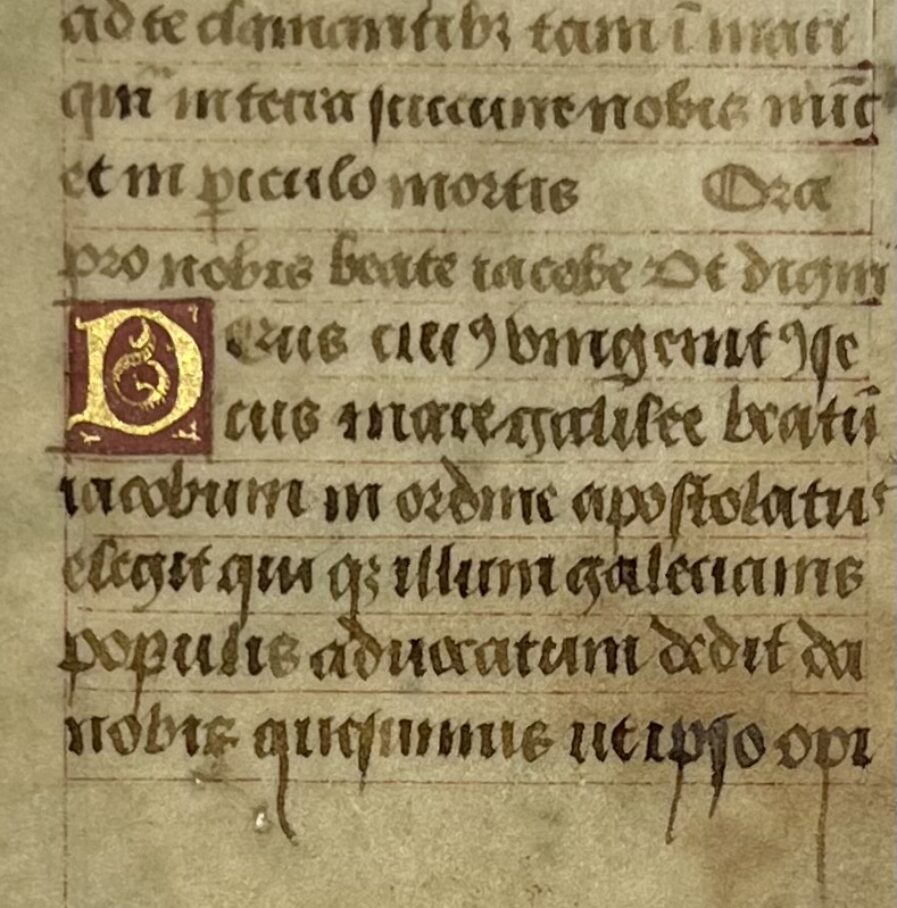 ad te clamantibꝫ tam ī mari
qm̄ in terra succurre nobis nūc
et in ꝑiculo mortis Ora
pro nobis beate iacobe Ut digni
Deus cuiꝰ vnigenitꝰ ꝯse
cus mare galilee beatū
iacobum in ordine apostolatus
elegit qui qꝫ illum galecianis
populis aduocatum dedit da
nobis quesumus ut ipso opi